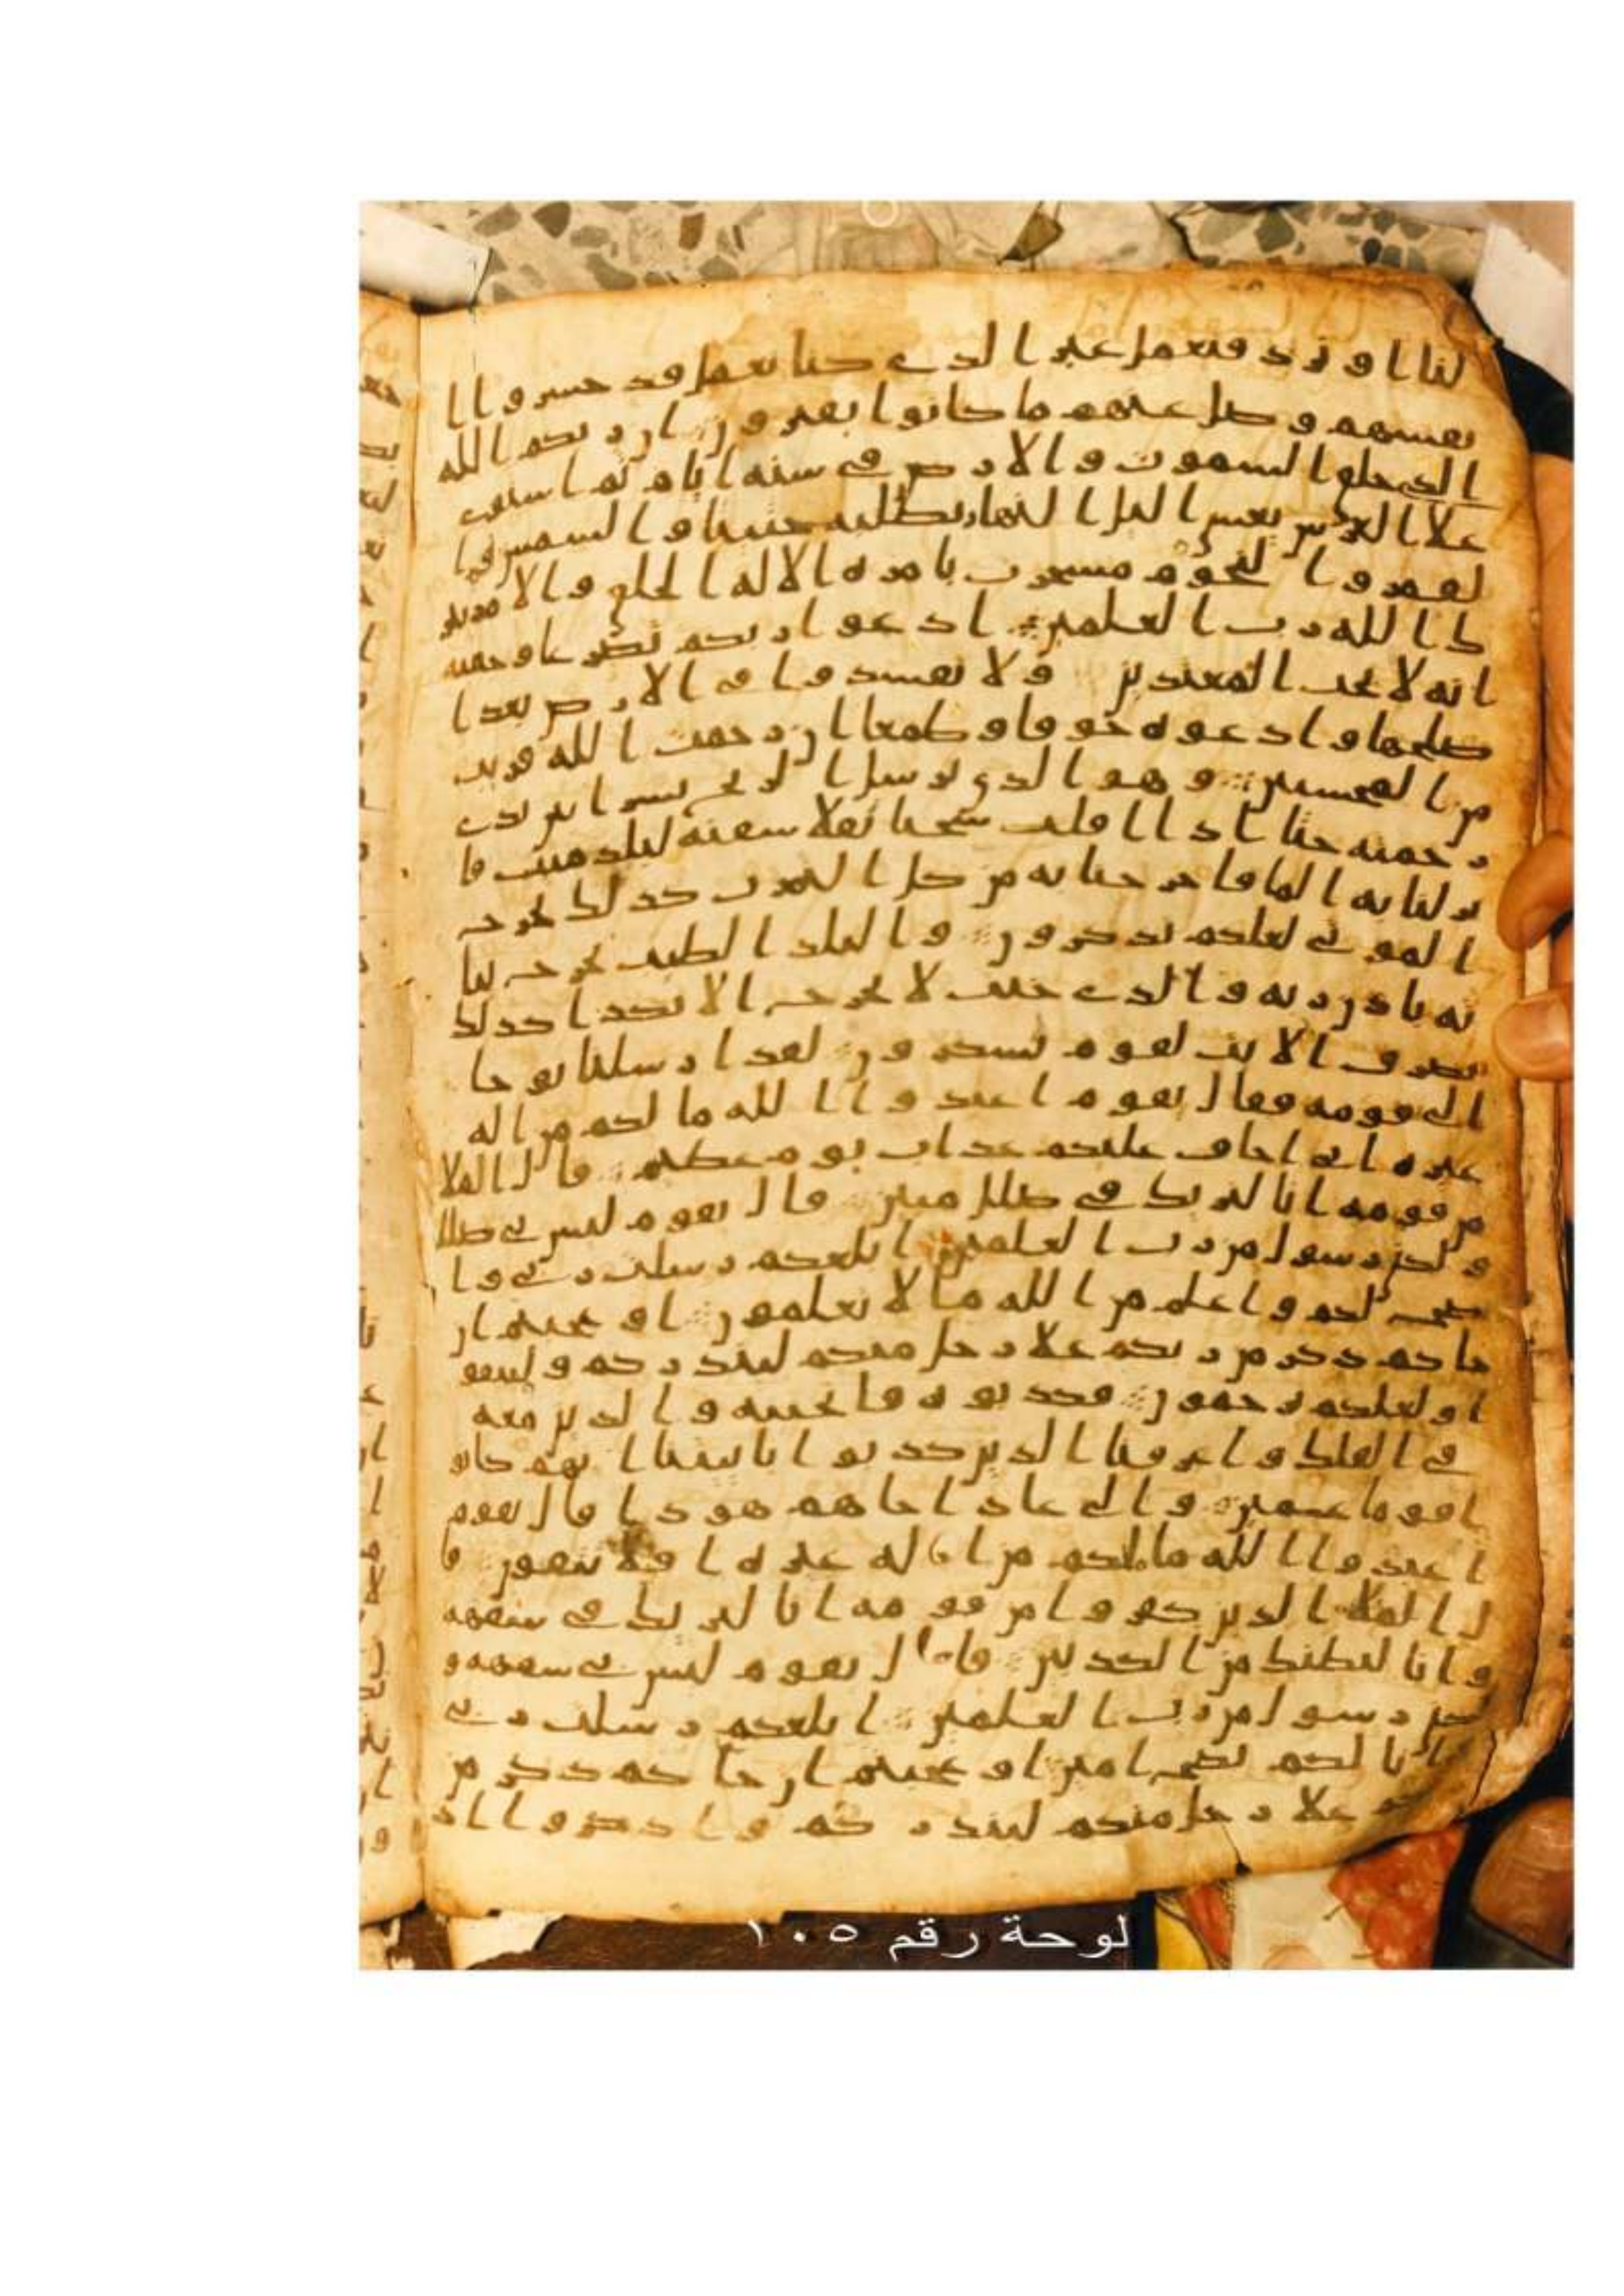 لنا او نرد فنعمل غير الذي كنا نعمل قد خسروا ا
نفسهم وضل عنهم ما كانوا يفترون ان ربكم الله
الذي خلق السموت والارض في ستة ايام ثم استوى
علا العرش يغشي اليل النهار يطلبه حثيثا والشمس وا
لقمر والنجوم مسخرت بامره الا له الخلق والامر تبر
ك الله رب العلمين ادعوا ربكم تضرعا وخفية
انه لا يحب المعتدين ولا تفسدوا في الارض بعد ا
صلحها وادعوه خوفا وطمعا ان رحمت الله قريب
من المحسنين وهو الذي يرسل الريح نشرا بين يدي
رحمته حتا اذا اقلت سحبا ثقلا سقنه لبلد ميت فا
نزلنا به الما فاخرجنا به من كل الثمرت كذلك نخرج
الموتى لعلكم تذكرون والبلد الطيب يخرج نبا
ته باذن ربه والذي خبث لا يخرج الا نكدا كذلك
نصرف الايت لقوم يشكرون لقد ارسلنا نوحا
الى قومه فقال يقوم اعبدوا الله ما لكم من اله
غيره اني اخاف عليكم عذاب يوم عظيم قال الملا
من قومه انا لنريك في ضلل مبين قال يقوم ليس بي ضلل
ولكن رسول من رب العلمين ابلغكم رسلت ربي وا
نصح لكم واعلم من الله ما لا تعلمون او عجبتم ان
جاكم ذكر من ربكم علا رجل منكم لينذركم ولتتقو
ا ولعلكم ترحمون فكذبوه فانجينه والذين معه
في الفلك واغرقنا الذين كذبوا بايتنا انهم كانو
ا قوما عمين والى عاد اخاهم هودا قال يقوم
اعبدوا الله ما لكم من اله غيره افلا تتقون قا
ل الملا الذين كفروا من قومه انا لنريك في سفهه
وانا لنظنك من الكذبين قال يقوم ليس بي سفهه و
لكن رسول من رب العلمين ابلغكم رسلت ربي
وانا لكم نصح امين او عجبتم ان جاكم ذكر من
علا رجل منكم لينذركم واذكروا اذ
لوحة رقم ١٠٥